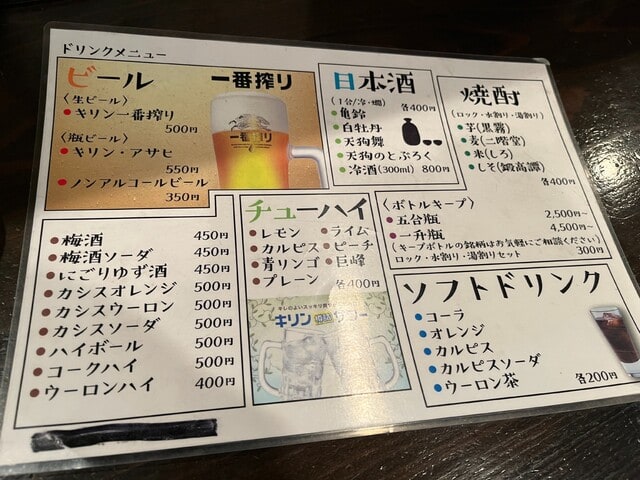 ドリンクメニュー
ビール 一番搾り
〈生ビール〉
キリン一番搾り
500円
〈瓶ビール〉
キリン・アサヒ
550円
ノンアルコールビール
350円
一番搾り
日本酒
(1合/冷・燗) 各400円
亀齢
白牡丹
天狗舞
天狗のとぶろく
冷酒(300ml) 800円
焼酎
(ロック・水割り・湯割り)
芋(黒霧)
麦(二階堂)
米(しろ)
しそ(鍛高譚)
各400円
〈ボトルキープ〉
五合瓶 2,500円~
一升瓶 4,500円~
(キープボトルの銘柄はお気軽にご相談ください)
ロック・水割り・湯割りセット 300円
梅酒 450円
梅酒ソーダ 450円
にごりゆず酒 450円
カシスオレンジ 500円
カシスウーロン 500円
カシスソーダ 500円
ハイボール 500円
コークハイ 500円
ウーロンハイ 400円
チューハイ
レモン ライム
カルピス ピーチ
青リンゴ 巨峰
プレーン 各400円
キリン
ソフトドリンク
コーラ
オレンジ
カルピス
カルピスソーダ
ウーロン茶 各200円